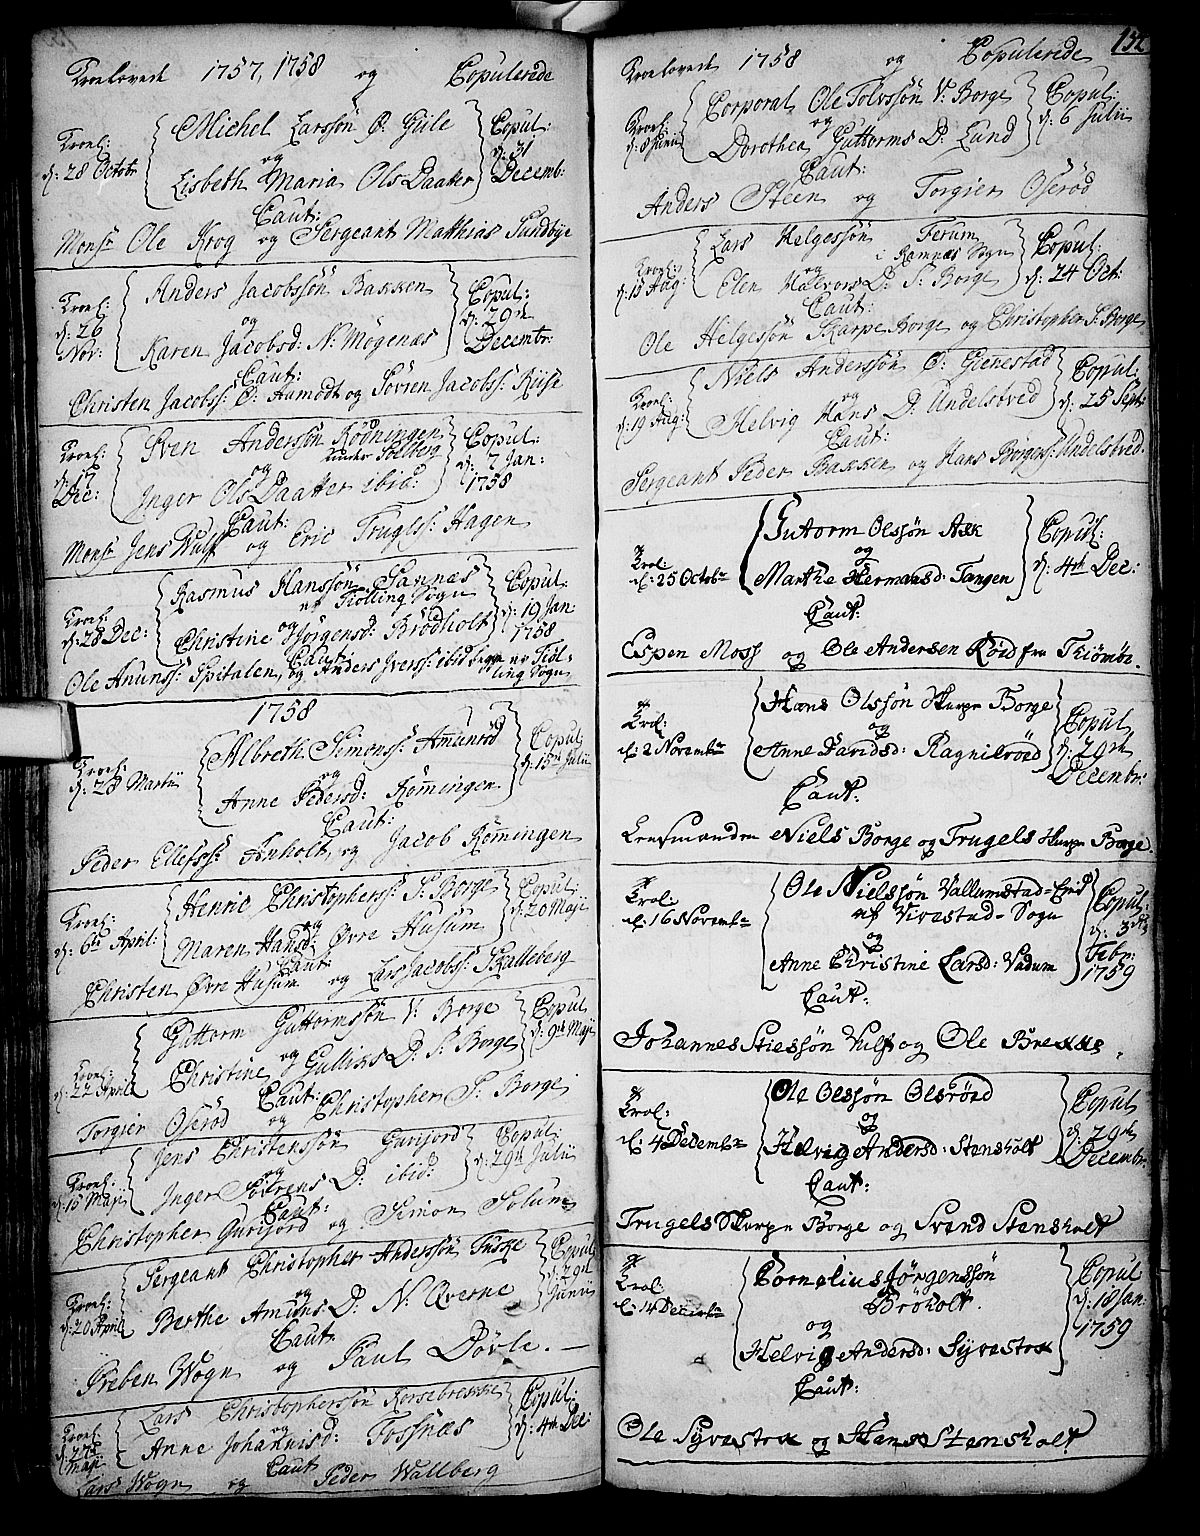 Troelovede 1757, 1758 og Copulerede
Troel: d: 28 Octobr
Michel Larssön Ø: Giile
og
Lisbeth Maria Ols Daatter
Copul: d: 31 Decemb:
Caut:
Monsr Ole Krog og Sergeant Matthias Sundbye
Troel: d: 26 Nov:
Anders Jacobssön Bakken
og
Karen Jacobsd: N: Mögenæs
Copul: d: 29de Decembr:
Caut:
Christen Jacobss: Ø: Aamodt og Sövren Jacobss: Riise
Troel: d: 17 Dec:
Sven Anderssön Rödningen
under Solberg
og
Inger Ols Daatter ibid:
Copul: d: 7 Jan: 1758
Caut:
Monsr Jens Wulf og Eric Truglss: Hagen
Troel: d: 28 Dec:
Rasmus Hanssön Sannæs
af Tiölling Sogn
og
Christine Jörgensd: Brödholt
Copul: d: 19 Jan: 1758
Caut:
Ole Anunss: Spitalen, og Anders Iverss: ibid begge af Tiöl-
ling Sogn
1758
Troel: d: 28 Martii
Albreth Simonss: Amunröd
og
Anne Pedersd: Römingen
Copul: d: 15de Julii
Caut:
Peder Ellefss: Anholt, og Jacob Römingen
Troel: d: 6te April:
Henric Christopherss: S: Borge
og
Maren Hansd: Øvre Husum
Copul: d: 20 Maji
Caut:
Christen Øvre Husum og Lars Jacobss: Skalleberg
Troel: d: 22 April
Guttorm Guttormssön V: Borge
og
Christine Gulliks D: S: Borge
Copul: d: 9de Maji
Caut:
Torgier Oseröd og Christopher S: Borge
Troel: d: 15 Maji
Jens Christenssön Gurijord
og
Inger Sövrens D: ibid:
Copul: d: 29de Julii
Caut:
Christopher Gurijord og Simon Solum
Troel: d: 20 April
Sergeant Christopher Anderssön Fuske
og
Berthe Amuns D: N: Qverne
Copul: d: 29de Junii
Caut:
Preben Wogn og Paul Døvle.
Troel: d: 27de Maji
Lars Christopherssön Korsebrekke
og
Anne Johannisd: Fossnæs
Copul: d: 4de Dec:
Caut:
Lars Wogn og Peder Wallberg
152
Troelovede 1758 og Copulerede
Troel: d: 8 Junii
Corporal Ole Tolvssön V: Borge
og
Dorothea Guttorms D: Lund
Copul: d: 6 Julii
Caut:
Anders Steen og Torgier Oseröd
Troel: d: 15 Aug:
Lars Helgessön Ferum
i Ramnæs Sogn
og
Elen Halvors D: S: Borge
Copul: d: 24 Oct:
Caut:
Ole Helgessön Skarpe Borge og Christopher S: Borge
Troel: d: 19 Aug:
Niels Anderssön Ø: Gienestad
og
Helvig Hans D: Undelsöved
Copul: d: 25 Sept:
Caut:
Sergeant Peder Bakken og Hans Börgess: Undelsöved.
Troel d: 25 Octobr
Gutorm Olssön Ask
og
Marthe Hermansd: Tangen
Copul: d: 4de Dec:
Caut:
Espen Moss og Ole Andersen Röid fra Thiömöe.
Troel: d: 2 Novembr
Hans Olssön Skarpe Borge
og
Anne Davidsd: Ragnilröid
Copul d: 29de Decembr:
Caut:
Lensmanden Niels Borge og Trugels Skarpe Borge.
Troel: d: 16 Novembr
Ole Nielssön Vallumstad-Eed
af Vivestad-Sogn
og
Anne Christine Larsd: Vadum
Copul: d: 3de Febr: 1759
Caut:
Johannes Stiessön Vulf og Ole Brekke.
Troel: d: 4 Decembr
Ole Olssön Olsröid
og
Helvig Andersd: Stensholt
Copul d: 29de Decembr:
Caut:
Trugels Skarpe Borge og Svend Stensholt
Troel: d: 14 Decembr
Cornelius Jörgenssön
Bröholt.
og
Helvig Andersd: Syvestok
Copul d: 18 Jan: 1759
Caut:
Ole Syvestok og Hans Stensholt